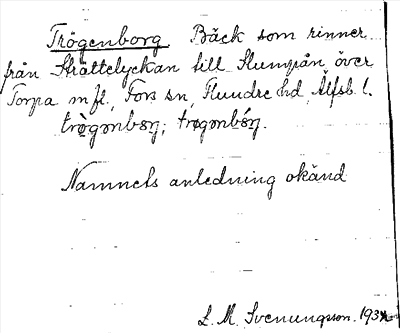 Trögenborg Bäck som rinner
från Skrättelyckan till Slumpån över
Torpa m fl., Fors sn, Flundre hd, Älfsb. l.
Namnets anledning okänd
L. M. Svenungsson. 193